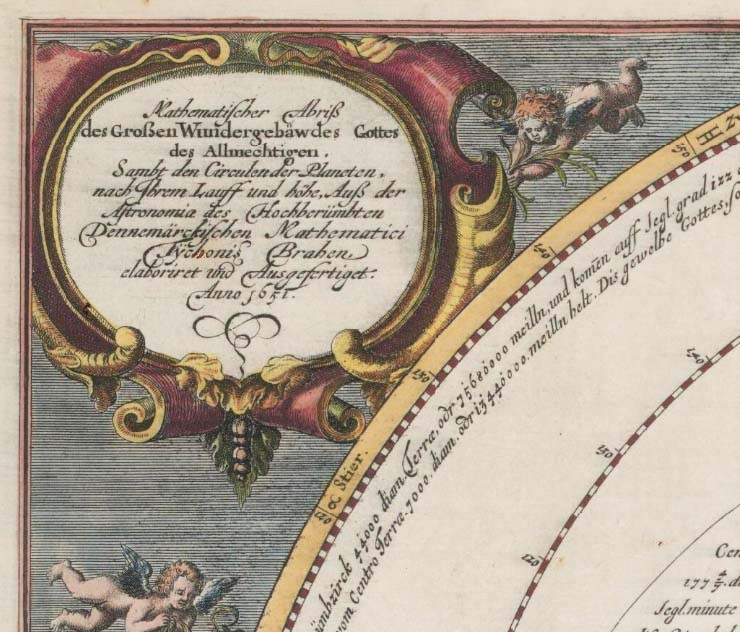 Mathematischer Abriß
des Großen Wundergebäwdes Gottes
des Allmechtigen.
Sambt den Circulen der Planeten,
nach Ihrem Lauff und höhe, Auß der
Astronomia des Hochberümbten
Dennemärckischen Mathematici
Tÿchonis Brahen
elaboriret und Ausgefertiget.
Anno 1651.
150
140
130
120
♉ Stier.
44000 diam. Terræ, odr 75680000 meilln, und komen auff Jegl. grad 122
vom Centro Terræ. 7000. diam. odr 13440000. meilln helt. Dis gewelbe Gottes, so
140
130
120
Cen
177 4/7. d
Jegl. minute